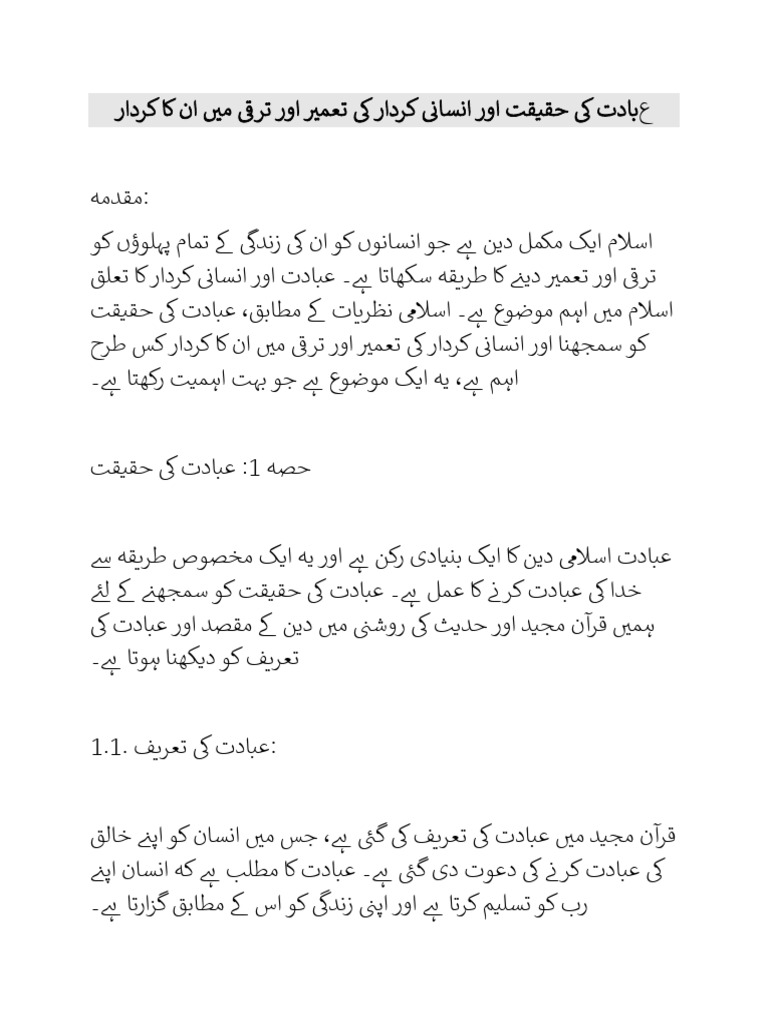 عبادت کی حقیقت اور انسانی کردار کی تعمیر اور ترقی میں ان کا کردار
مقدمہ:
اسلام ایک مکمل دین ہے جو انسانوں کو ان کی زندگی کے تمام پہلوؤں کو
ترقی اور تعمیر دینے کا طریقہ سکھاتا ہے۔ عبادت اور انسانی کردار کا تعلق
اسلام میں اہم موضوع ہے۔ اسلامی نظریات کے مطابق، عبادت کی حقیقت
کو سمجھنا اور انسانی کردار کی تعمیر اور ترقی میں ان کا کردار کس طرح
اہم ہے، یہ ایک موضوع ہے جو بہت اہمیت رکھتا ہے۔
حصہ 1: عبادت کی حقیقت
عبادت اسلامی دین کا ایک بنیادی رکن ہے اور یہ ایک مخصوص طریقہ سے
خدا کی عبادت کرنے کا عمل ہے۔ عبادت کی حقیقت کو سمجھنے کے لئے
ہمیں قرآن مجید اور حدیث کی روشنی میں دین کے مقصد اور عبادت کی
تعریف کو دیکھنا ہوتا ہے۔
1.1. عبادت کی تعریف:
قرآن مجید میں عبادت کی تعریف کی گئی ہے، جس میں انسان کو اپنے خالق
کی عبادت کرنے کی دعوت دی گئی ہے۔ عبادت کا مطلب ہے کہ انسان اپنے
رب کو تسلیم کرتا ہے اور اپنی زندگی کو اس کے مطابق گزارتا ہے۔